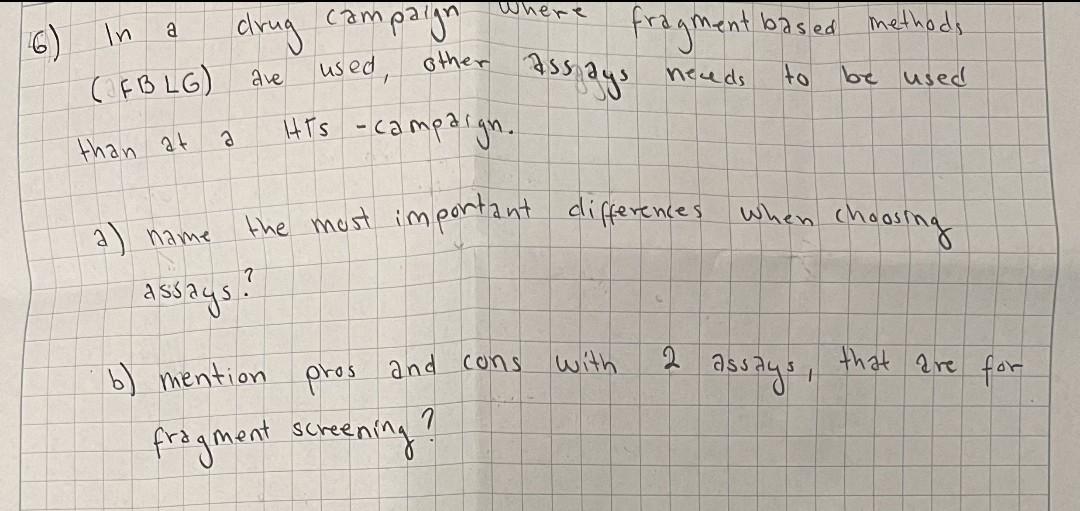 6) In a drug campaign where fragment based methods
(FBLG) are used, other assays needs to be used
than at a HTS - campaign.
a) name the most important differences when choosing
assays?
b) mention pros and cons with 2 assays, that are for
fragment screening?